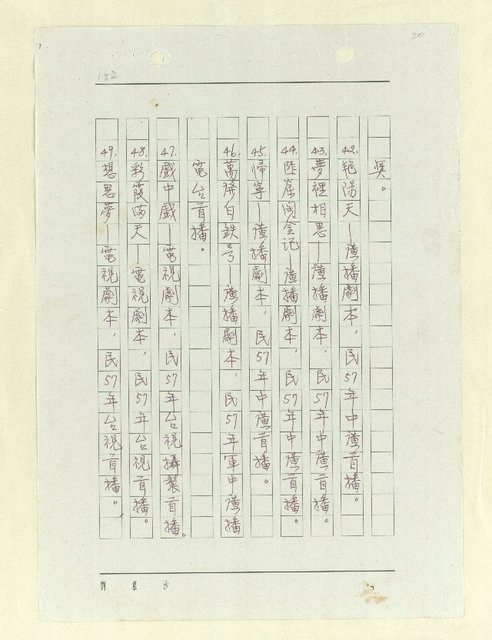 152
奖。
42.艳陽天—廣播劇本，民57年中廣首播。
43.夢裡相思—廣播劇本，民57年中廣首播。
44.匪窟淘金记—廣播劇本，民57年中廣首播。
45.归宁—廣播劇本，民57年中廣首播。
46.萬發白鉄号—廣播劇本，民57年軍中廣播
電台首播。
47.戲中戲—電視劇本，民57年台視攝製首播。
48.彩霞满天—電視劇本，民57年台視首播。
49.想思夢—電視劇本，民57年台視首播。